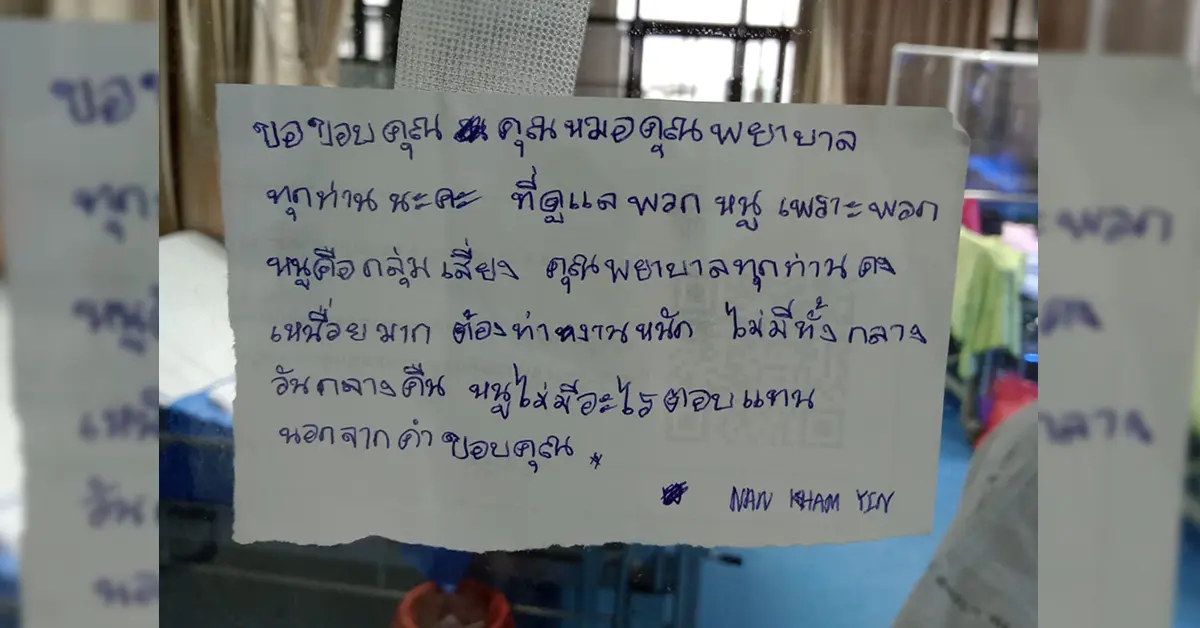 ขอขอบคุณ คุณหมอคุณพยาบาล
ทุกท่านนะคะ ที่ดูแลพวกหนู เพราะพวก
หนูคือกลุ่มเสี่ยง คุณพยาบาลทุกท่านคง
เหนื่อยมาก ต้องทำงานหนัก ไม่มีทั้งกลาง
วันกลางคืน หนูไม่มีอะไรตอบแทน
นอกจากคำขอบคุณ
NAN KHAM YIN